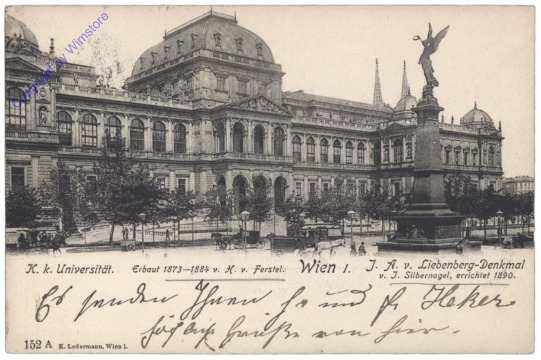 Copyright by Wimstore
K. k. Universität. Erbaut 1873–1884 v. H. v. Ferstel. Wien I. J. A. v. Liebenberg-Denkmal
v. J. Silbernagel, errichtet 1890.
Es senden Ihnen und Heker
Grüße von hier.
152 A K. Ledermann, Wien I.